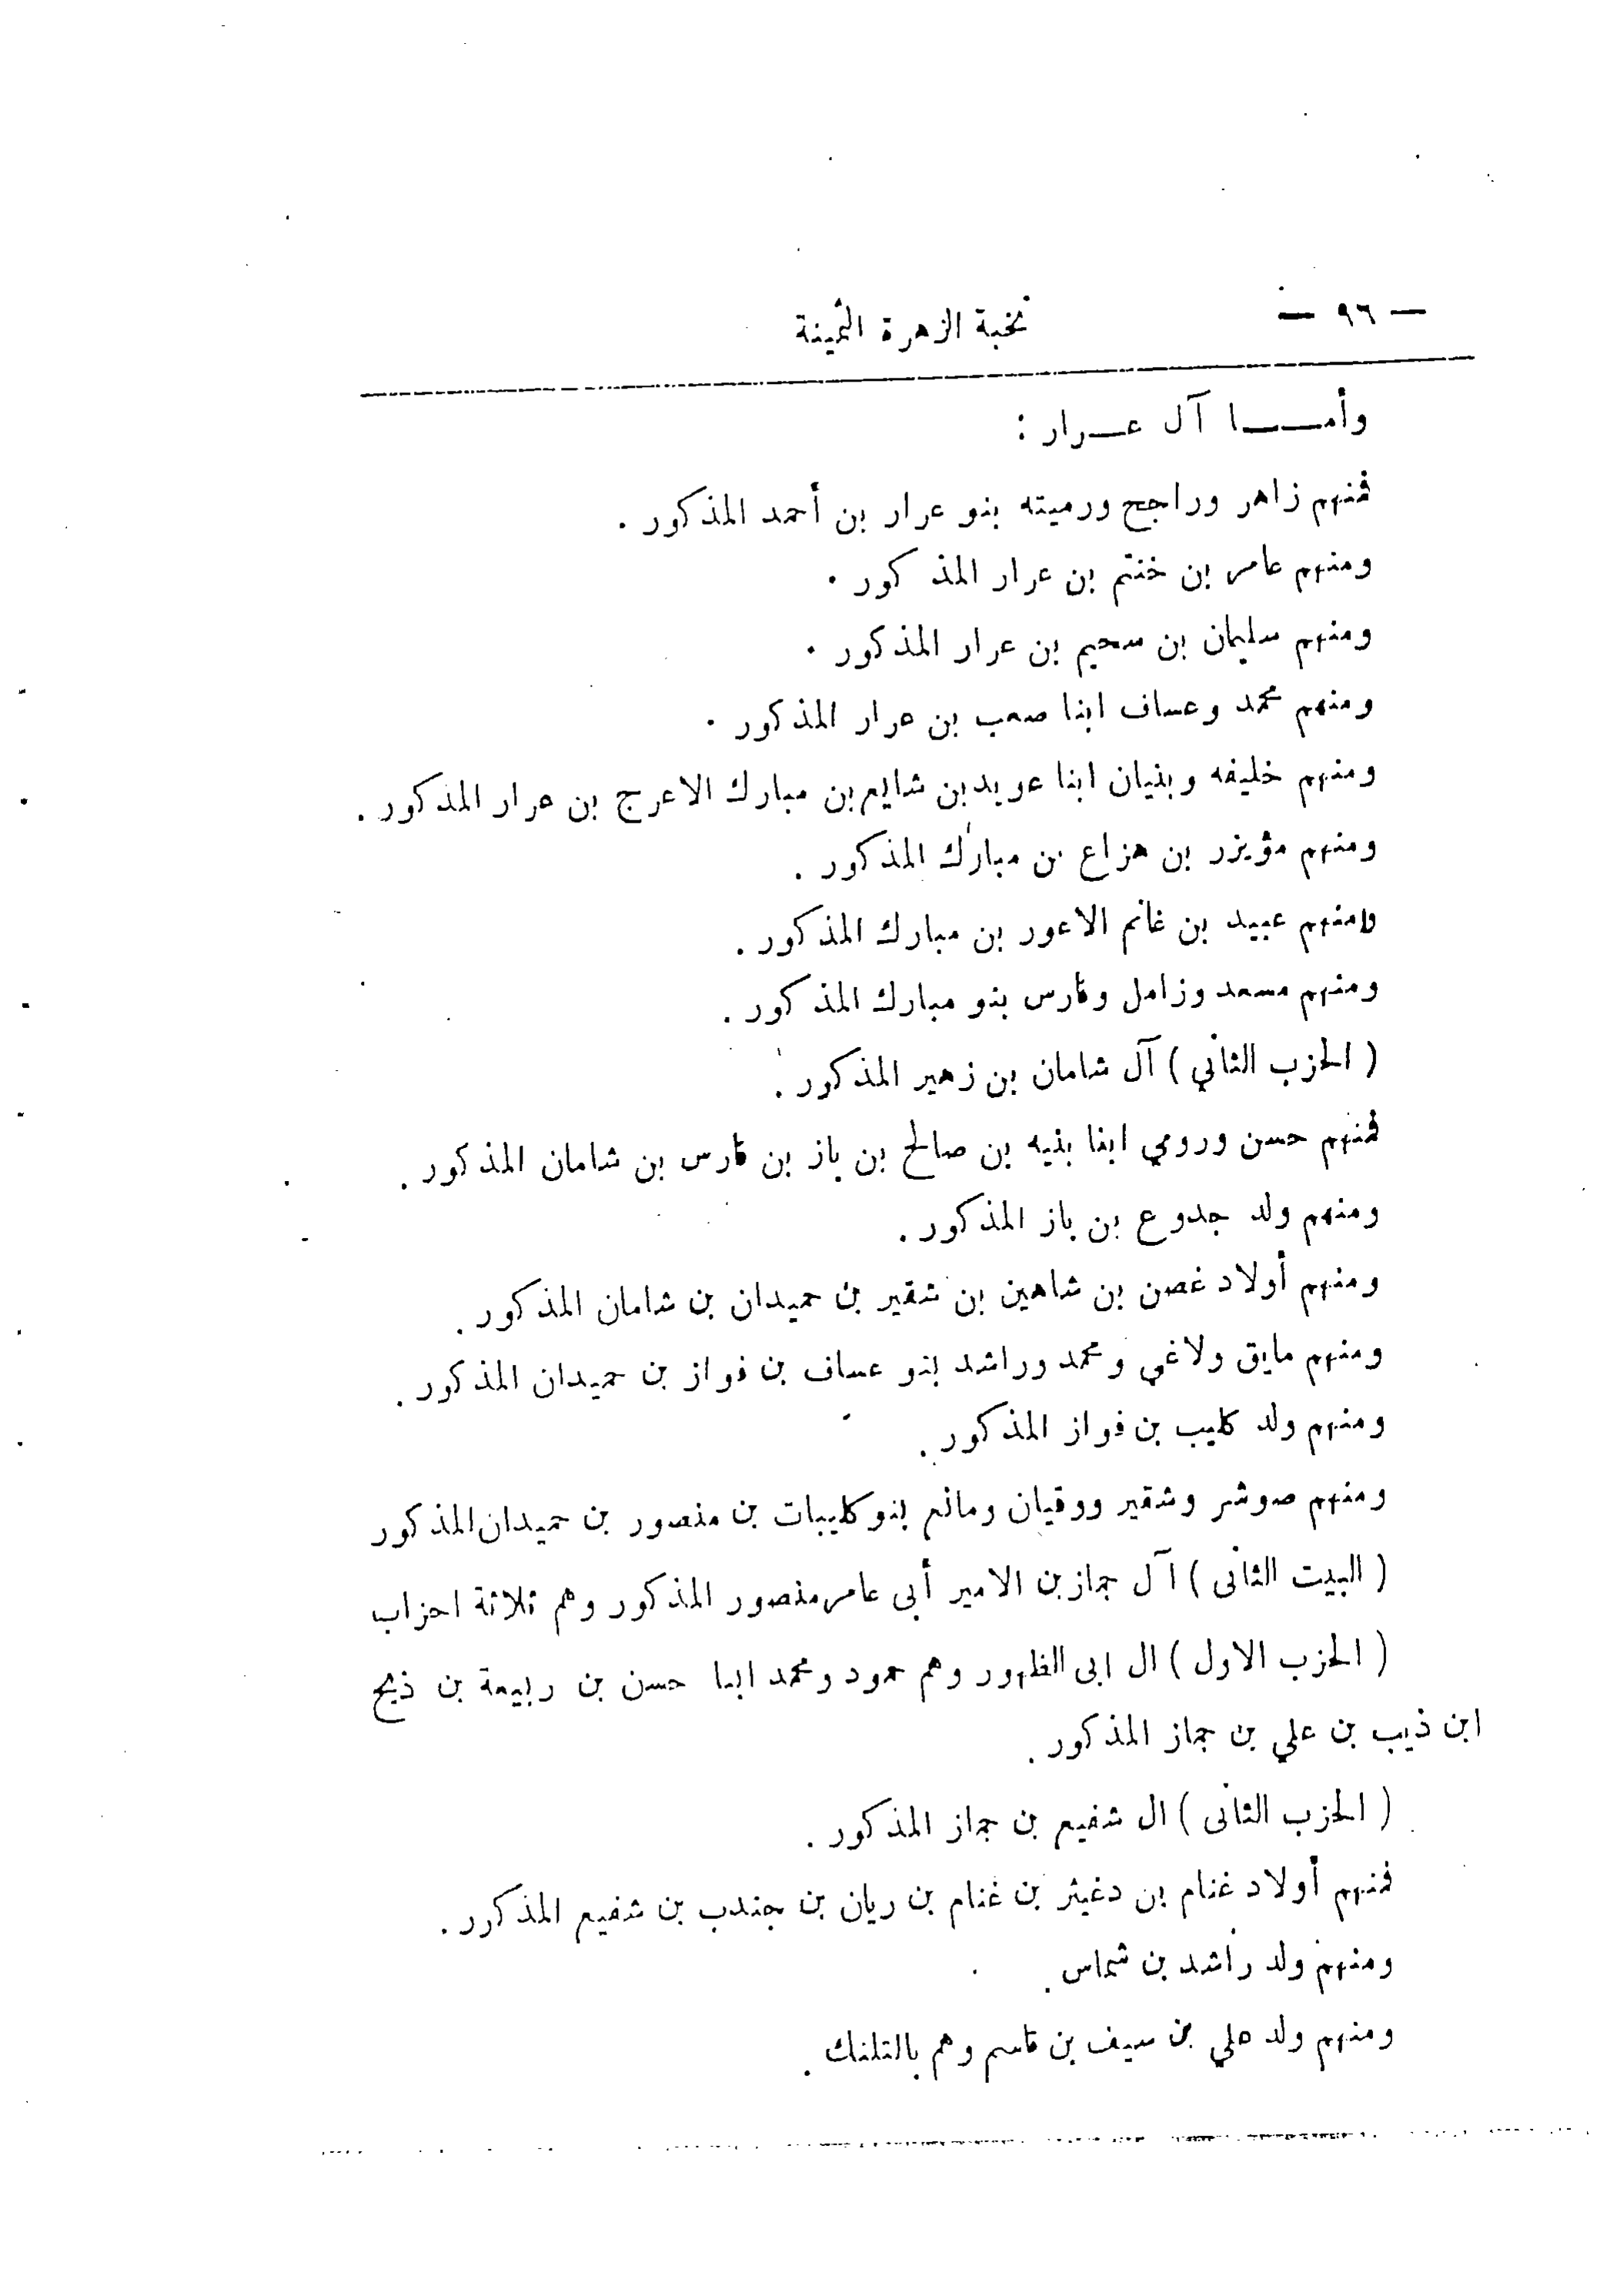 — ٩٦ — نخبة الزهرة الثمينة
وأمـــا آل عـرار :
فمنهم زاهر وراجح ورميته بنو عرار بن أحمد المذكور .
ومنهم عامر بن خنتم بن عرار المذ كور .
ومنهم سليمان بن سحيم بن عرار المذكور .
ومنهم محمد وعساف ابنا صعب بن عرار المذكور .
ومنهم خليفه وبنيان ابنا عويد بن شايع بن مبارك الاعرج بن عرار المذكور .
ومنهم مؤيزر بن هزاع بن مبارك المذكور .
ومنهم عبيد بن غانم الاعور بن مبارك المذكور .
ومنهم مسعد وزامل وفارس بنو مبارك المذكور .
( الحزب الثاني ) آل شامان بن زهير المذكور .
فمنهم حسن ورومي ابنا بنيه بن صالح بن باز بن فارس بن شامان المذكور .
ومنهم ولد جدوع بن باز المذكور .
ومنهم أولاد غصن بن شاهين بن شقير بن حميدان بن شامان المذكور .
ومنهم مايق ولاغي ومحمد وراشد بنو عساف بن فواز بن حميدان المذكور .
ومنهم ولد كليب بن فواز المذكور .
ومنهم صوشر وشقير ووقيان ومانع بنو كليبات بن منصور بن حميدان المذكور
( البيت الثانى ) آل جماز بن الامير أبى عامر منصور المذكور وهم ثلاثة احزاب
( الحزب الاول ) ال ابى الظهور وهم حمود ومحمد ابنا حسن بن ربيعة بن ذيح
ابن ذيب بن علي بن جماز المذكور .
( الحزب الثانى ) ال شفيع بن جماز المذكور .
فمنهم أولاد غنام بن دغيثر بن غنام بن ريان بن جندب بن شفيع المذكور .
ومنهم ولد راشد بن شماس .
ومنهم ولد علي بن سيف بن قاسم وهم بالتلنك .